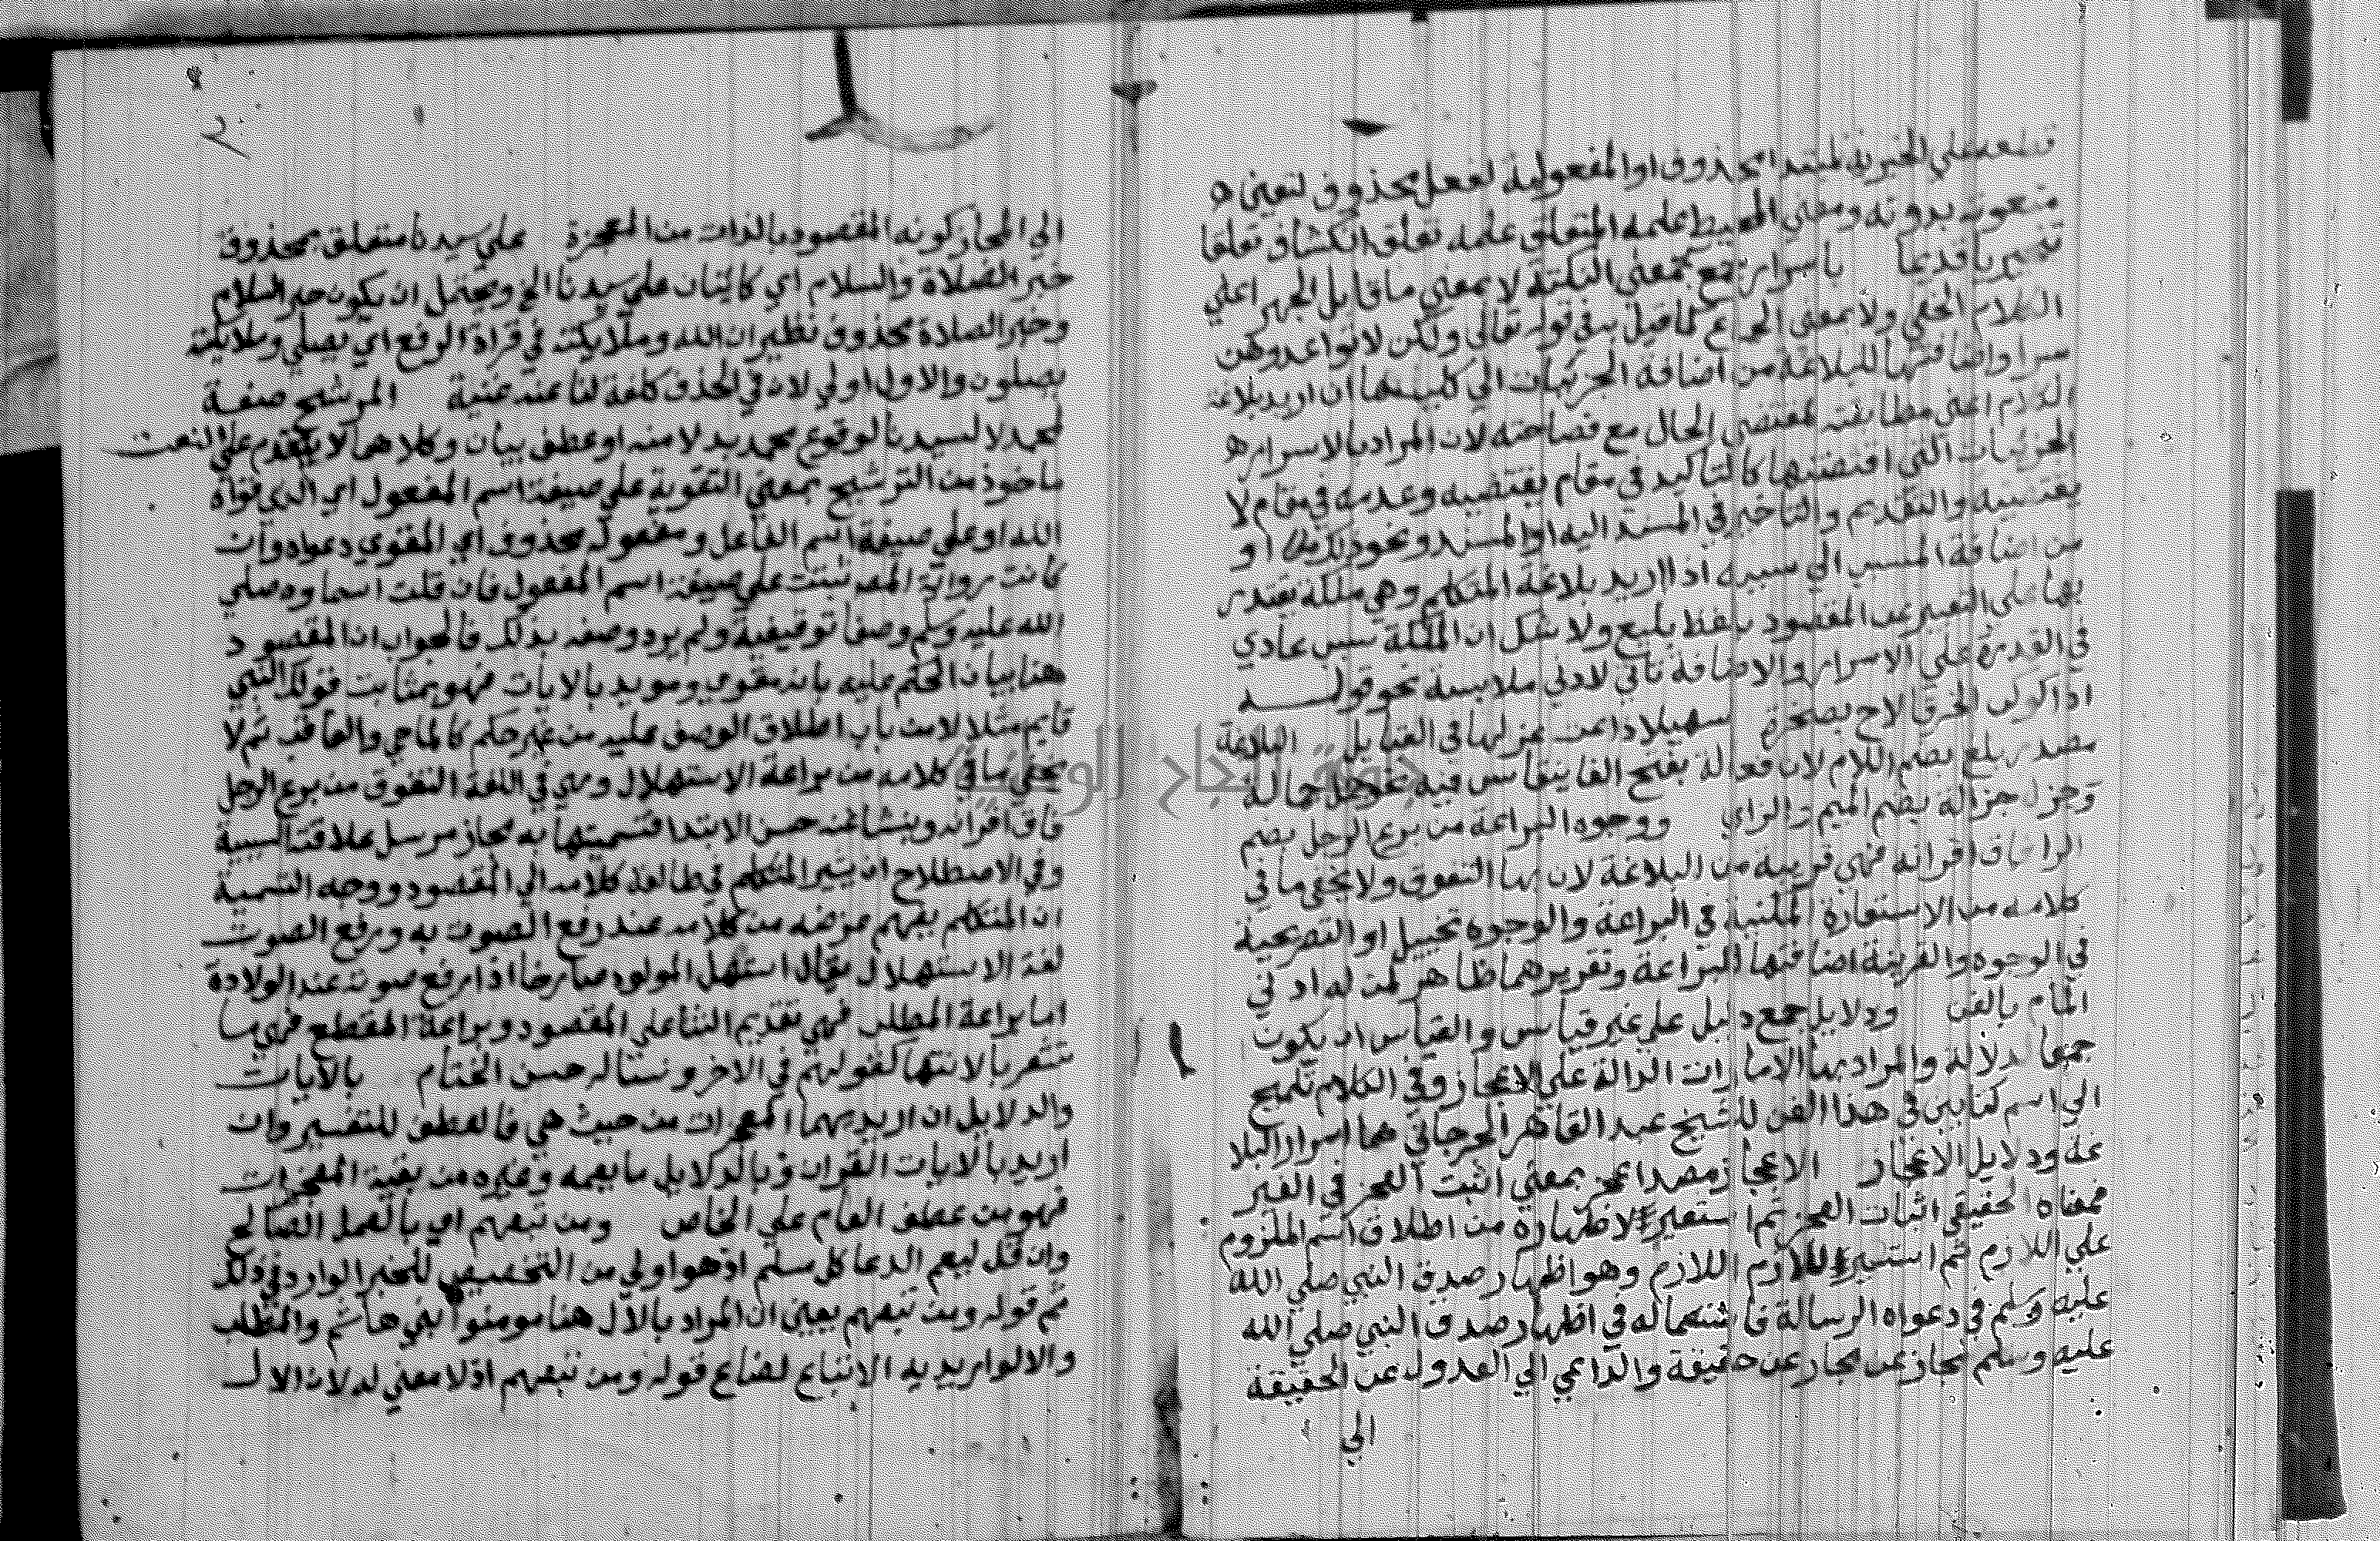 على الخبرية لمبتدا محذوف او المفعولية لفعل محذوف لتعين
منعوته بدونه ومعني المحيط علمه المتعلق علمه تعلق انكشاف تعلقا
تنجيزيا قديما باسرار جمع بمعني النكتة لا بمعني ما قابل الجهر اعني
الكلام الخفي ولا بمعني الجماع كما قيل به في قوله تعالي ولكن لا تواعدوهن
سرا واضافتها للبلاغة من اضافة الجزئيات الي كليها ان اريد بلاغة
الكلام اعني مطابقته لمقتضي الحال مع فصاحته لان المراد بالاسرار
الجزئيات التي اقتضتها كالتاكيد في مقام يقتضيه وعدمه في مقام لا
يقتضيه والتقديم والتاخير في المسند اليه او المسند ونحو ذلك او
من اضافة المسبب الي سببه اذا اريد بلاغة المتكلم وهي ملكة يقتدر
بها علي التعبير عن المقصود بلفظ بليغ ولا شك ان الملكة سبب عادي
في القدرة علي الاسرار والاضافة تاتي لادني ملابسة نحو قولـــه
اذا كوكب الخرقا لاح بسحرة سهيل اذاعت غزلها في القبايل البلاغة
مصدر بلغ بضم اللام لان فعالة بفتح الفا ينقاس فيه نحو جمل جمالة
وجزل جزالة بضم الميم والزاي ووجوه البراعة من برع الرجل بضم
الرا فاق اقرانه فهي قريبة من البلاغة لان بها التفوق ولا يخفي ما في
كلامه من الاستعارة المكنية في البراعة والوجوه تخييل او التصريحية
في الوجوه والقرينة اضافتها للبراعة وتقريرهما ظاهر لمن له ادني
المام بالفن ودلايل جمع دليل علي غير قياس والقياس ان يكون
جمعا لدلالة والمراد بها الامارات الدالة علي الاعجاز وفي الكلام تلميح
الي اسم كتابين في هذا الفن للشيخ عبد القاهر الجرجاني هما اسرار البلا
غة ودلايل الاعجاز الاعجاز مصدر اعجز بمعني اثبت العجز في الغير
فمعناه الحقيقي اثبات العجز ثم استعير لاظهاره من اطلاق اسم الملزوم
علي اللازم ثم استعير للازم اللازم وهو اظهار صدق النبي صلي الله
عليه وسلم في دعواه الرسالة فاستعماله في اظهار صدق النبي صلي الله
عليه وسلم مجاز عن مجاز عن حقيقة والداعي الي العدول عن الحقيقة
الي
الي المجاز كونه المقصود بالذات من المعجزة علي سيدنا متعلق بمحذوف
خبر الصلاة والسلام اي كاينان علي سيدنا الخ ويحتمل ان يكون خبر السلام
وخبر الصلاة محذوف نظير ان الله وملايكته في قراة الرفع اي يصلي وملايكته
يصلون والاول اولي لان في الحذف كلفة لنا عنه غنية المرشح صفة
لمحمد لا لسيدنا لوقوع محمد بدلا منه او عطف بيان وكلاهما لا يتقدم علي النعت
ماخوذ من الترشيح بمعني التقوية علي صيغة اسم المفعول اي الذي قواه
الله او علي صيغة اسم الفاعل ومفعوله محذوف اي المقوي دعواه وان
كانت رواية المص ثبتت علي صيغة اسم المفعول فان قلت اسماوه صلي
الله عليه وسلم وصفا توقيفية ولم يرد وصفه بذلك فالجواب ان المقصود
هنا بيان الحكم عليه بانه مقوي ومويد بالايات فهو بمثابة قولك النبي
قايم مثلا لا من باب اطلاق الوصف عليه من غير حكم كالماحي والعاقب ثم لا
يخفي ما في كلامه من براعة الاستهلال وهي في اللغة التفوق من برع الرجل
فاق اقرانه وينشا عنه حسن الابتدا فتسميتها به مجاز مرسل علاقته السببية
وفي الاصطلاح ان يشير المتكلم في طالعة كلامه الي المقصود ووجه التسمية
ان المتكلم يفهم غرضه من كلامه عند رفع الصوت به ورفع الصوت
لغة الاستهلال يقال استهل المولود صارخا اذا رفع صوته عند الولادة
اما براعة المطلب فهي تقديم الثنا علي المقصود وبراعة المقطع فهي ما
تشعر بالانتها كقولهم في الاخر ونساله حسن الختام بالايات
والدلايل ان اريد بهما المعجزات من حيث هي فالعطف للتفسير وان
اريد بالايات القران وبالدلايل ما يعمه وغيره من بقية المعجزات
فهو من عطف العام علي الخاص ومن تبعهم اي بالعمل الصالح
وان قل ليعم الدعا كل مسلم اذ هو اولي من التخصيص للخبر الوارد في ذلك
ثم قوله ومن تبعهم يعين ان المراد بالال هنا مومنوا بني هاشم والمطلب
والا لو اريد به الاتباع لضاع قوله ومن تبعهم اذ لا معني له لان الال
جامعة النجاح الوطنية